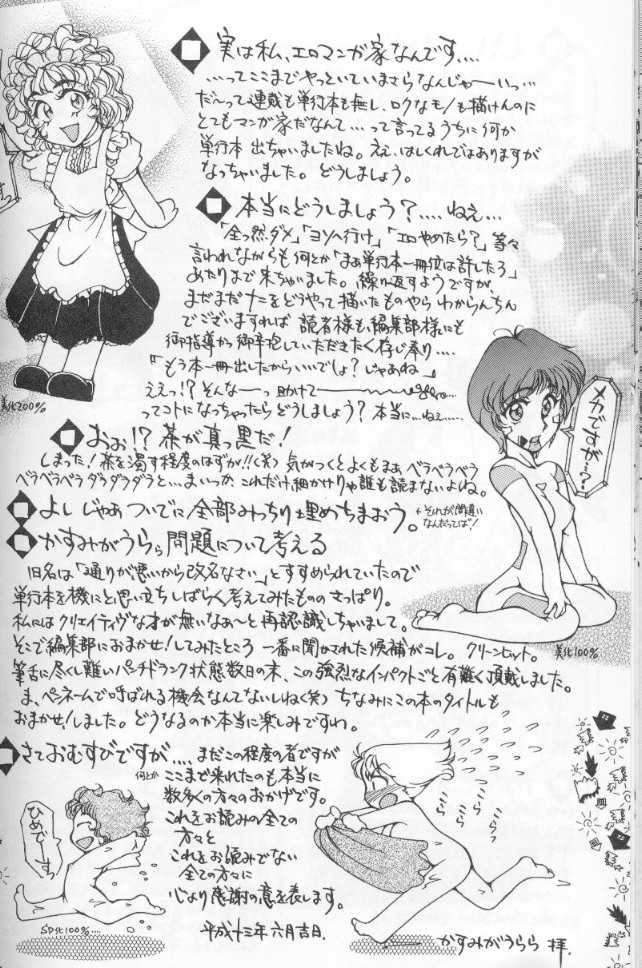 実は私、エロマンガ家なんです....
...ってここまでやっといていまさらなんじゃーいっ...
だ〜って連載も単行本も無し、ロクなモノも描けんのに
とてもマンガ家だなんて...って言ってるうちに何か
単行本 出ちゃいましたね。ええ、はしくれではありますが
なっちゃいました。どうしましょう。
本当にどうしましょう?....ねえ...
「全っ然ダメ」「ヨソへ行け」「エロやめたら?」等々
言われながらも何とか「まあ単行本一冊位は許したろ」
あたりまで来ちゃいました。繰り返すようですが、
まだまだナニをどうやって描いたものやら わからんちん
でございますれば 読者様も編集部様にも
御指導かつ御辛抱していただきたく存じ奉り....
「もう本一冊出したからいいでしょ? じゃあね」
ええっ!? そんなーっ 助けて
ってコトになっちゃったらどうしましょう? 本当に...ねえ......
美化200%
おお!? 茶が真っ黒だ!
しまった! 茶を濁す程度のはずが!!(笑) 気がつくとよくもまあ ベラベラベラ
ベラベラベラ ダラダラダラと...まいっか、これだけ細かけりゃ誰も読まないよね。
メカですが...?
よし じゃあ ついでに 全部みっちり埋めちまおう。
←それが間違いなんだってば!
かすみがうらら問題について考える
旧名は「通りが悪いから改名なさい」とすすめられていたので
単行本を機にと思い立ちしばらく考えてみたものの さっぱり。
私にはクリエイティヴな才が無いなあ〜と 再認識しちゃいまして。
そこで編集部におまかせ!してみたところ 一番に聞かされた候補がコレ。クリーンヒット。
美化100%
筆舌に尽くし難いパンチドランク状態数日の末、この強烈なインパクトごと有難く頂戴しました。
ま、ペンネームで呼ばれる機会なんてないしね(笑) ちなみにこの本のタイトルも
おまかせ!しました。どうなるのか本当に楽しみですわ。
さておむすびですが....まだこの程度の者ですが
何とか
ここまで来れたのも本当に
数多くの方々のおかげです。
これをお読みの全ての
方々と
これをお読みでない
全ての方々に
心より感謝の意を表します。
平成十三年六月吉日.
かすみがうらら 拝.
ひめでーす
SD化100%....
うらうら
うらうら